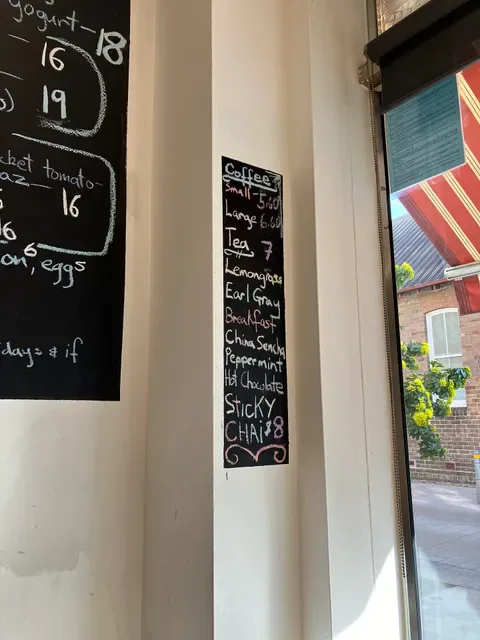 yogurt-18
16
19
cket tomato-
az- 16
16
6
on, eggs
days & if
Coffee
Small-5.60
Large 6.60
Tea 7
Lemongrass
Earl Gray
Breakfast
China Sencha
Peppermint
Hot Chocolate
STICKY
CHAI $8